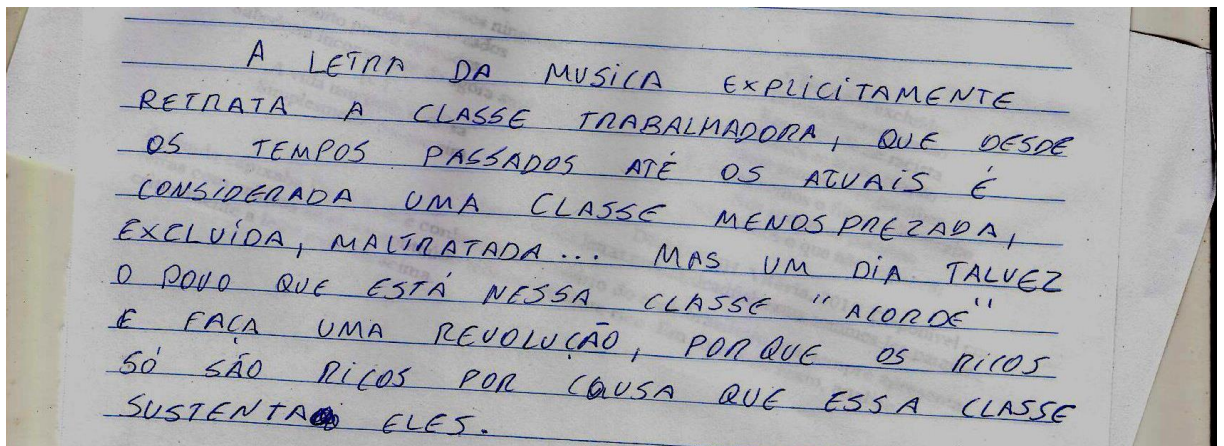 A LETRA DA MUSICA EXPLICITAMENTE
RETRATA A CLASSE TRABALHADORA, QUE DESDE
OS TEMPOS PASSADOS ATÉ OS ATUAIS É
CONSIDERADA UMA CLASSE MENOSPREZADA,
EXCLUÍDA, MALTRATADA... MAS UM DIA TALVEZ
O POVO QUE ESTÁ NESSA CLASSE "ACORDE"
E FAÇA UMA REVOLUÇÃO, PORQUE OS RICOS
SÓ SÃO RICOS POR CAUSA QUE ESSA CLASSE
SUSTENTA ELES.